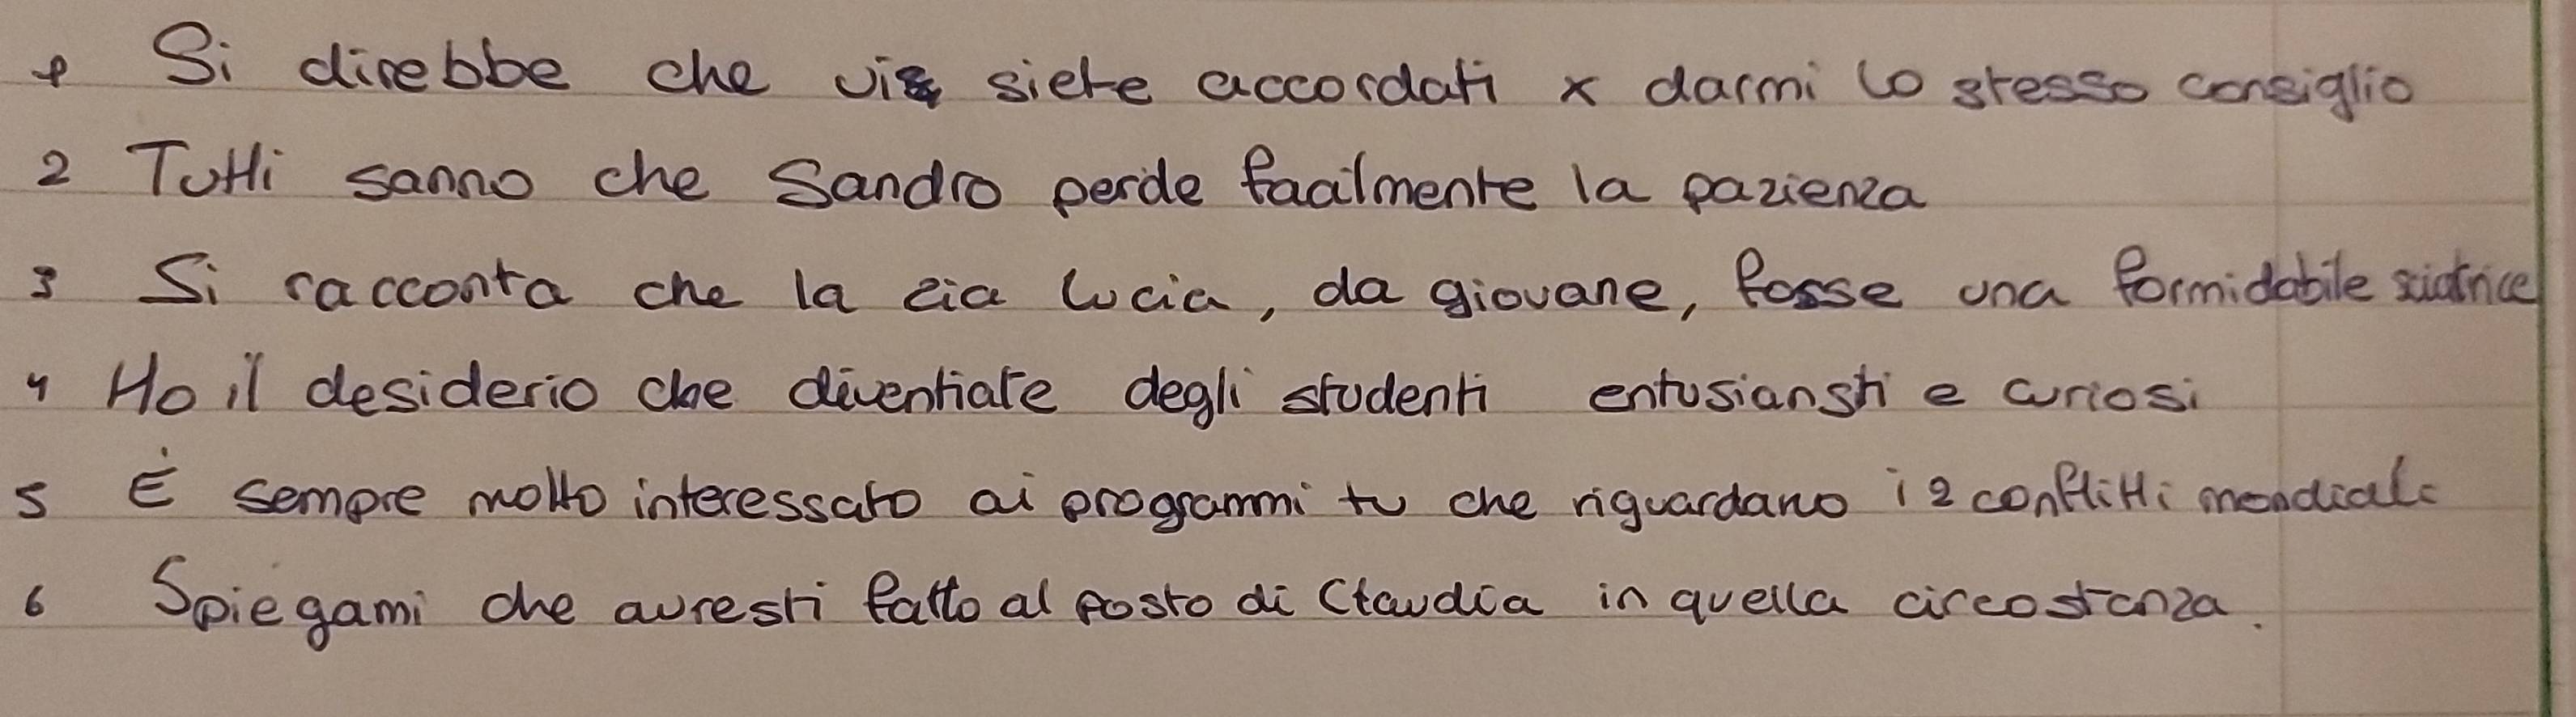 1 Si direbbe che vi siete accordati x darmi lo stesso consiglio
2 Tutti sanno che Sandro perde facilmente la pazienza
3 Si racconta che la zia Lucia, da giovane, fosse una formidabile sciatrice
4 Ho il desiderio che diventiate degli studenti entusiansti e curiosi
5 È sempre molto interessato ai programmi tv che riguardano i 2 conflitti mondiali
6 Spiegami che avresti fatto al posto di Claudia in quella circostanza.